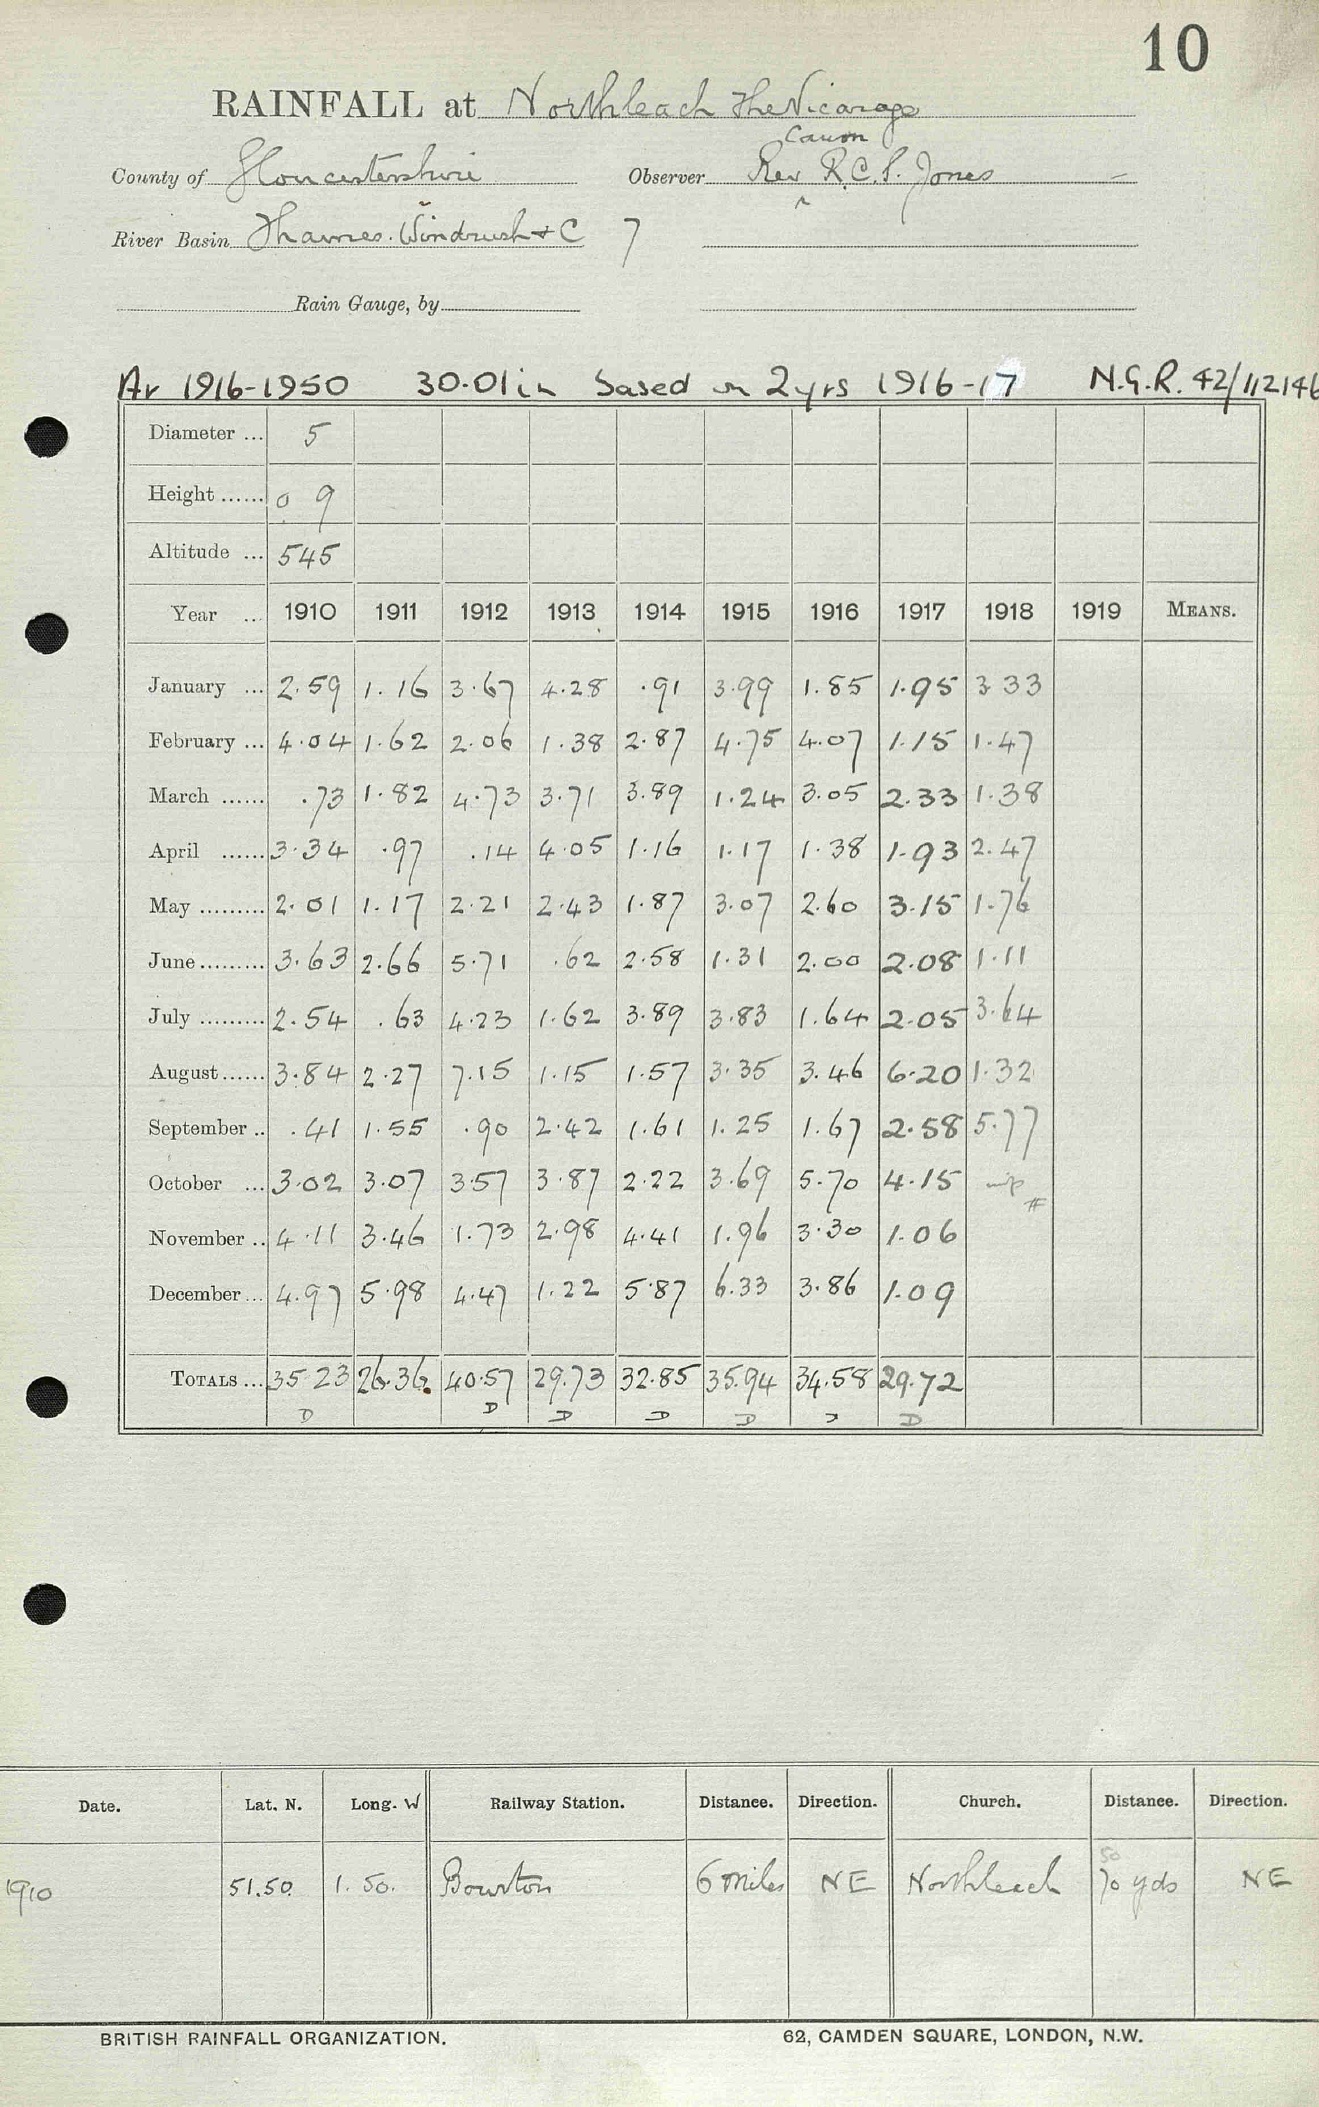 10
RAINFALL at Northleach The Vicarage
Canon
County of Gloucestershire Observer Rev ^ R.C.S. Jones
River Basin Thames. Windrush + C 7
Rain Gauge, by
Av 1916-1950 30.01 in based on 2 yrs 1916-17 N.G.R. 42/112146
Diameter ... 5
Height ...... 0 9
Altitude ... 545
Year ... 1910 1911 1912 1913 1914 1915 1916 1917 1918 1919 MEANS.
January ... 2.59 1.16 3.67 4.28 .91 3.99 1.85 1.95 3.33
February ... 4.04 1.62 2.06 1.38 2.87 4.75 4.07 1.15 1.47
March ...... .73 1.82 4.73 3.71 3.89 1.24 3.05 2.33 1.38
April ...... 3.34 .97 .14 4.05 1.16 1.17 1.38 1.93 2.47
May ......... 2.01 1.17 2.21 2.43 1.87 3.07 2.60 3.15 1.76
June ......... 3.63 2.66 5.71 .62 2.58 1.31 2.00 2.08 1.11
July ......... 2.54 .63 4.23 1.62 3.89 3.83 1.64 2.05 3.64
August ...... 3.84 2.27 7.15 1.15 1.57 3.35 3.46 6.20 1.32
September .. .41 1.55 .90 2.42 1.61 1.25 1.67 2.58 5.77
October ... 3.02 3.07 3.57 3.87 2.22 3.69 5.70 4.15
November .. 4.11 3.46 1.73 2.98 4.41 1.96 3.30 1.06
December ... 4.97 5.98 4.47 1.22 5.87 6.33 3.86 1.09
TOTALS ... 35 23 26.36 40.57 29.73 32.85 35.94 34.58 29.72
D D D D D D D
Date. Lat. N. Long. W Railway Station. Distance. Direction. Church. Distance. Direction.
50
1910 51.50 1. 50. Bourton 6 miles NE Northleach 70 yds NE
BRITISH RAINFALL ORGANIZATION. 62, CAMDEN SQUARE, LONDON, N.W.